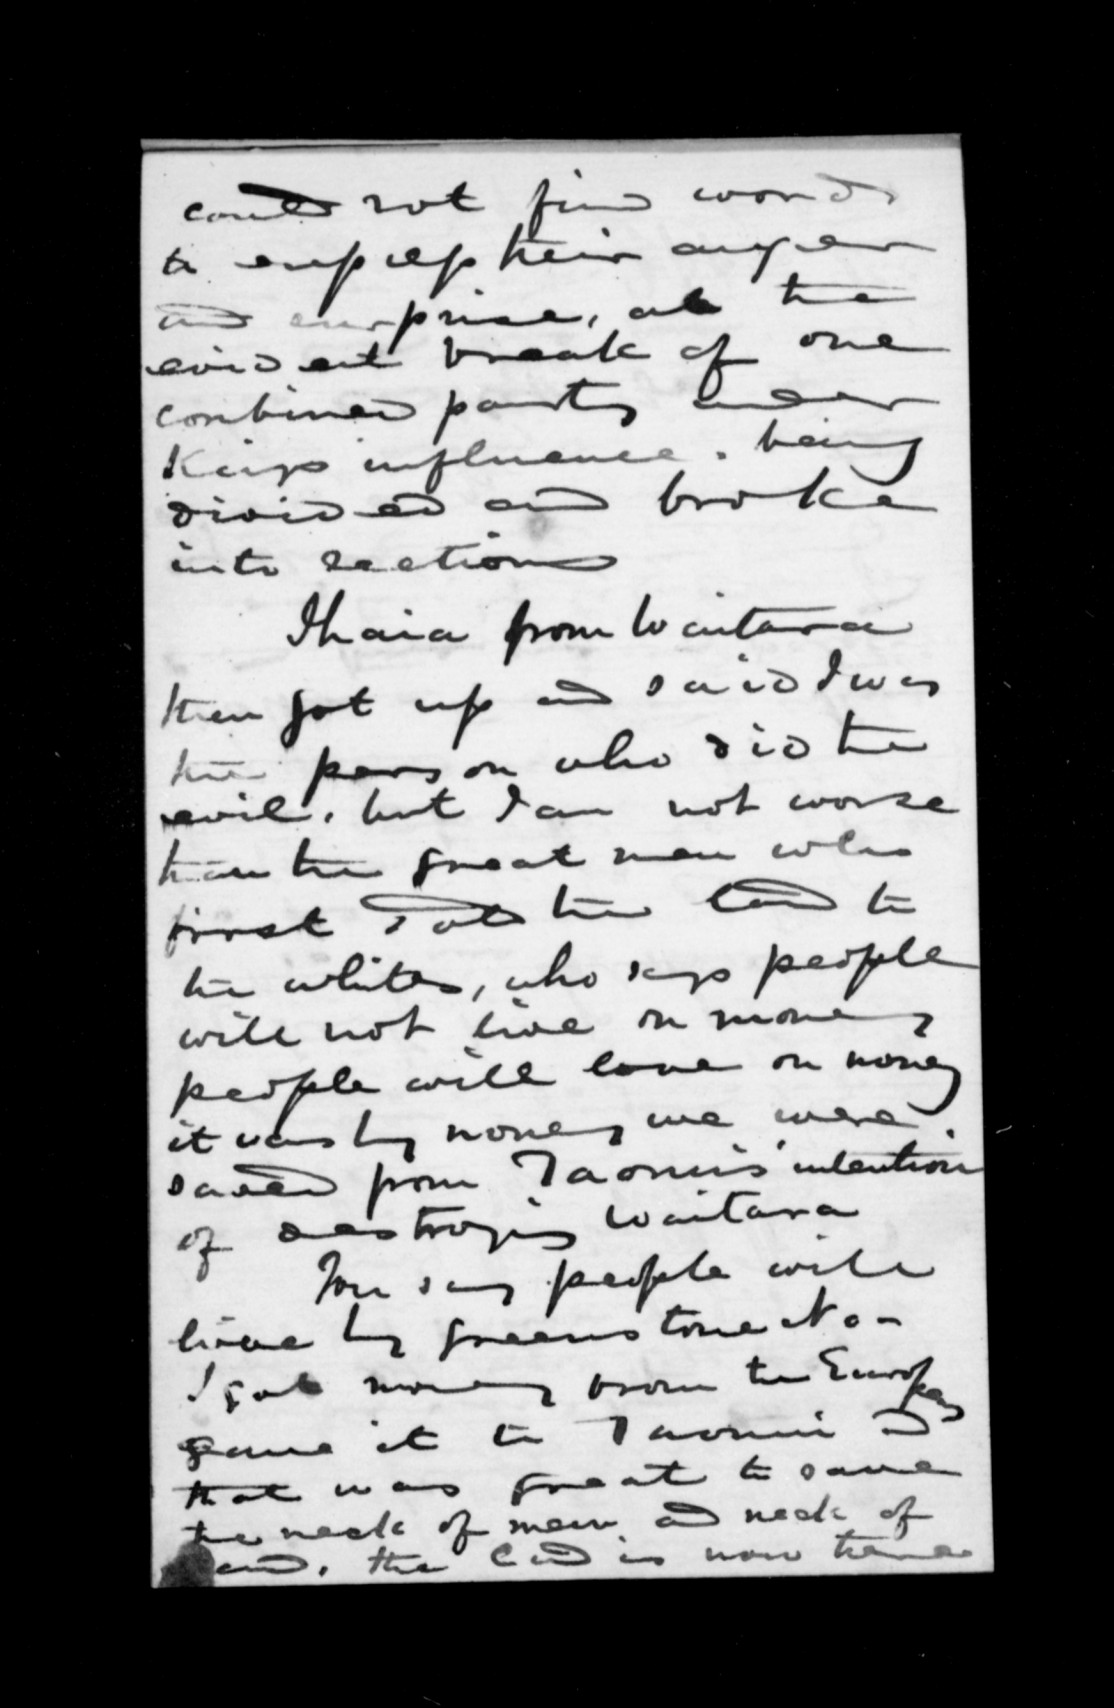 could not find words
to express their anger
and surprise, at the
evident break of one
combined party under
Kings influence. being
divided and broke
into sections
Ihaia from Waitara
then got up and said I was
the person who did the
evil, but I am not worse
than the great men who
first sold the land to
the whites, who says people
will not live on money
people will love on money
it was by money we were
saved from Taonui's intention
of destroying Waitara
You say people will
live by greenstone No -
I got money from the Europeans
gave it to Taonui &
that was great to save
the neck of men and neck of
land. the land is now there